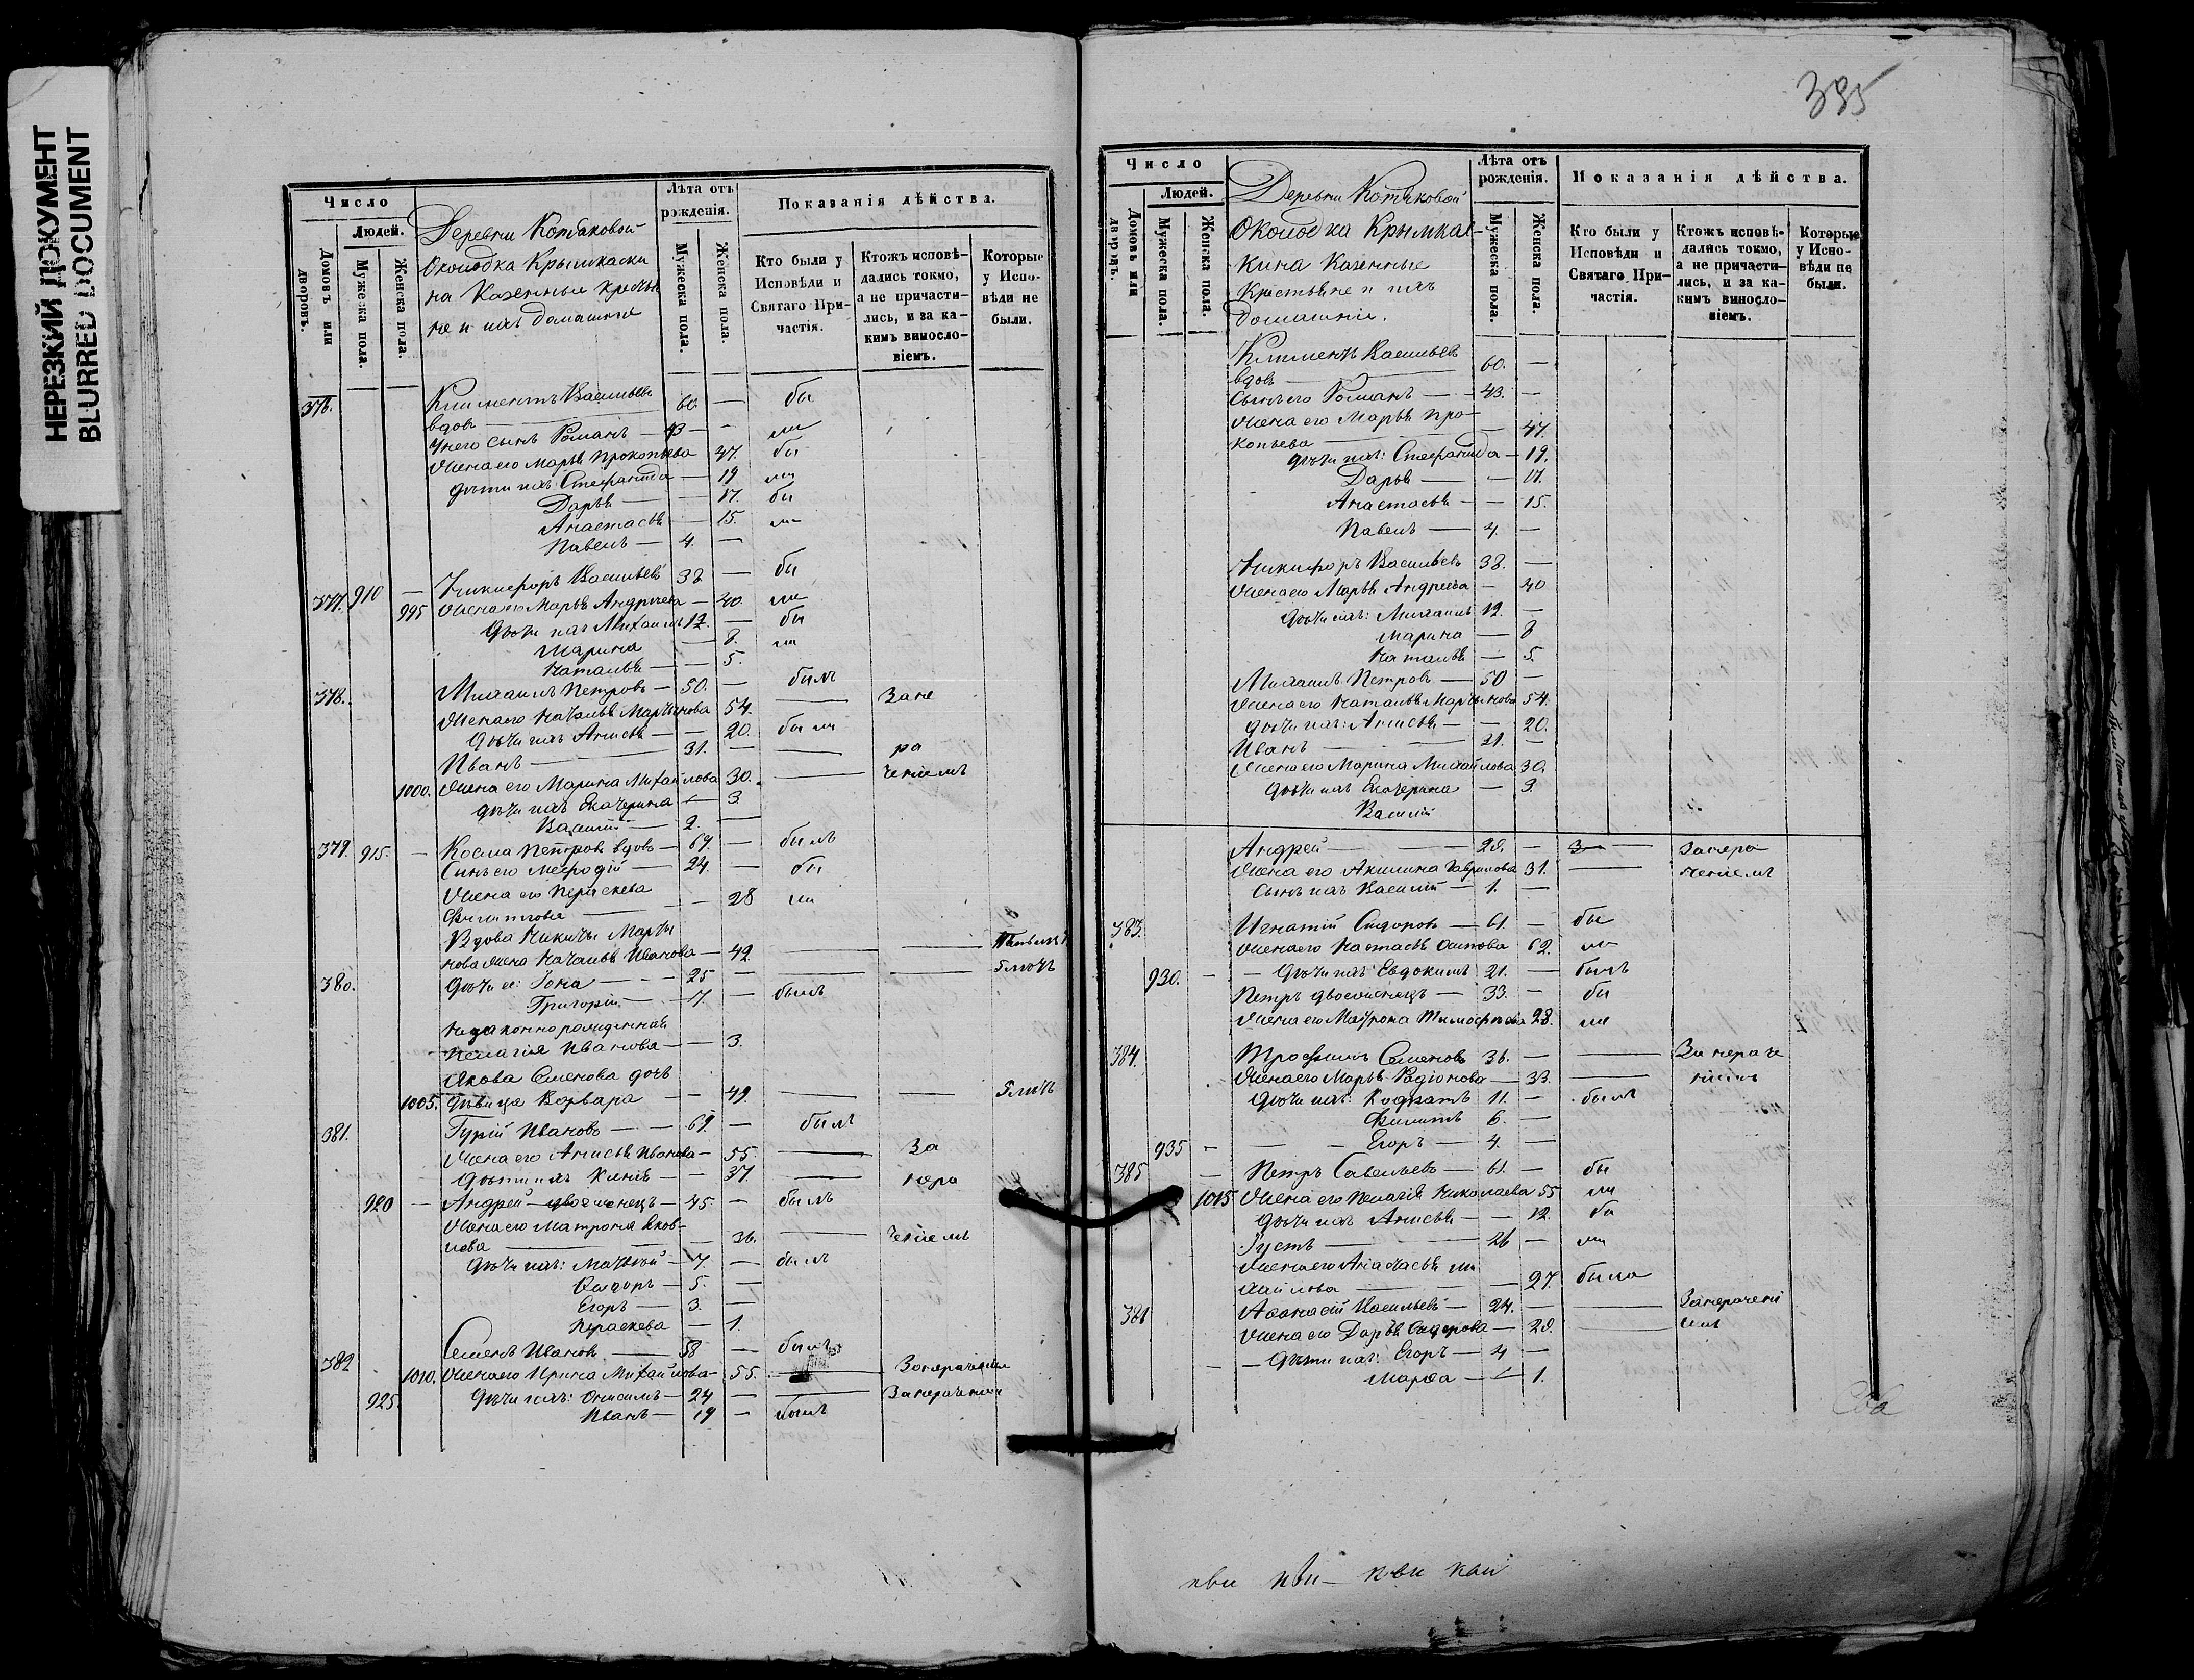 НЕРЕЗКИЙ ДОКУМЕНТ
BLURRED DOCUMENT
Число
Людей.
Домовъ или дворовъ.
Мужеска пола.
Женска пола.
Деревни Котяковой
Околодка Крымкаски
на Казенные крестья
не и ихъ домашніе
Лѣта отъ рожденія.
Мужеска пола.
Женска пола.
Показанія дѣйства.
Кто были у Исповѣди и Святаго Причастія.
Ктожъ исповѣдались токмо, а не причастились, и за какимъ винословіемъ.
Которые у Исповѣди не были.
376. Климентъ Васильевъ 60. — бы
вдовъ
У него сынъ Романъ — 43 — ли
Жена его Марья Прокопьева — 47. бы
дѣти ихъ Степанида — 19 ли
Дарья — 17. бы
Анастасья — 15. ли
Павелъ — 4. —
377. 910 — Никифоръ Васильевъ 38 — бы
995 Жена его Марья Андреева — 40. ли
дѣти ихъ Михаилъ 12. — бы
Марина — 8. ли
Наталья — 5.
378. Михаилъ Петровъ — 50. — былъ
Жена его Наталья Мартынова 54. — Зане
дѣти ихъ Анисья — 20. были
Иванъ — 31. — ра
1000. Жена его Марина Михайлова 30. — ченіемъ
дѣти ихъ Екатерина — 3.
Василій — 2. —
379. 915. — Косма Петровъ вдовъ — 69. — былъ
Сынъ его Мефодій — 24. — бы
Жена его Параскева
Филиппова — 28 ли
Вдова Никиты Марты
нова жена Наталья Иванова — 42
380. дѣти ея: Іона — 25 —
Григорій — 17. — былъ
Незаконнорожденная
Пелагія Иванова — 3.
Якова Семенова дочь
1005. дѣвица Варвара — 49.
381. Гурій Ивановъ — 69. — былъ
Жена его Анисья Иванова — 55. — За
дѣти ихъ — 37. — нера
920 — Андрей двоеженецъ — 45. — былъ
Жена его Матрона Яков-
лева — 36. — ченіемъ
дѣти ихъ: Матвѣй — 7. — былъ
Ѳедоръ — 5. —
Егоръ — 3. —
Параскева — 1.
382 Семенъ Ивановъ — 58 — былъ
1010. Жена его Ирина Михайлова — 55. — Занераченіемъ
925. дѣти ихъ: Онисимъ — 24 — Занераченіемъ
Иванъ — 19 — былъ
395
Число
Людей.
Домовъ или дворовъ.
Мужеска пола.
Женска пола.
Деревни Котяковой
Околодка Крымкас-
кина Казенные
Крестьяне и ихъ
домашніе.
Лѣта отъ рожденія.
Мужеска пола.
Женска пола.
Показанія дѣйства.
Кто были у Исповѣди и Святаго Причастія.
Ктожъ исповѣдались токмо, а не причастились, и за какимъ винословіемъ.
Которые у Исповѣди не были.
Климентъ Васильевъ
вдовъ — 60. —
Сынъ его Романъ — 43. —
Жена его Марья Про-
копьева — 47.
дѣти ихъ: Степанида — 19.
Дарья — 17.
Анастасья — 15.
Павелъ — 4. —
Никифоръ Васильевъ 38. —
Жена его Марья Андреева — 40
дѣти ихъ: Михаилъ 12. —
Марина — 8
Наталья — 5.
Михаилъ Петровъ — 50 —
Жена его Наталья Мартынова 54.
дѣти ихъ: Анисья — 20.
Иванъ — 31. —
Жена его Марина Михайлова 30.
дѣти ихъ Екатерина — 3.
Василій
Андрей — 28. — Занера
Жена его Акилина Гаврилова 31. — ченіемъ
Сынъ ихъ Василій — 1. —
383. Игнатій Сидоровъ — 61. — бы
Жена его Настасья Осипова 62. ли
930. — дѣти ихъ Евдокимъ 21. — былъ
Петръ двоеженецъ — 33. — бы
Жена его Матрона Тимофеева 28. ли
384. Трофимъ Семеновъ 36. — Занераче
Жена его Марья Родіонова — 33. — ніемъ
дѣти ихъ: Кодратъ 11. — былъ
Филиппъ 6. —
935 — Егоръ — 4. —
385 — Петръ Савельевъ — 61. — бы
1015 Жена его Пелагія Николаева 55 ли
дѣти ихъ Анисья — 12. бы
Густъ — 26 — ли
Жена его Анастасья Ми
хайлова — 27. была
386 Аѳанасій Васильевъ — 24. — Занерачені
Жена его Дарья Сидорова — 28. — емъ
дѣти ихъ: Егоръ — 4 —
Марѳа — 1.